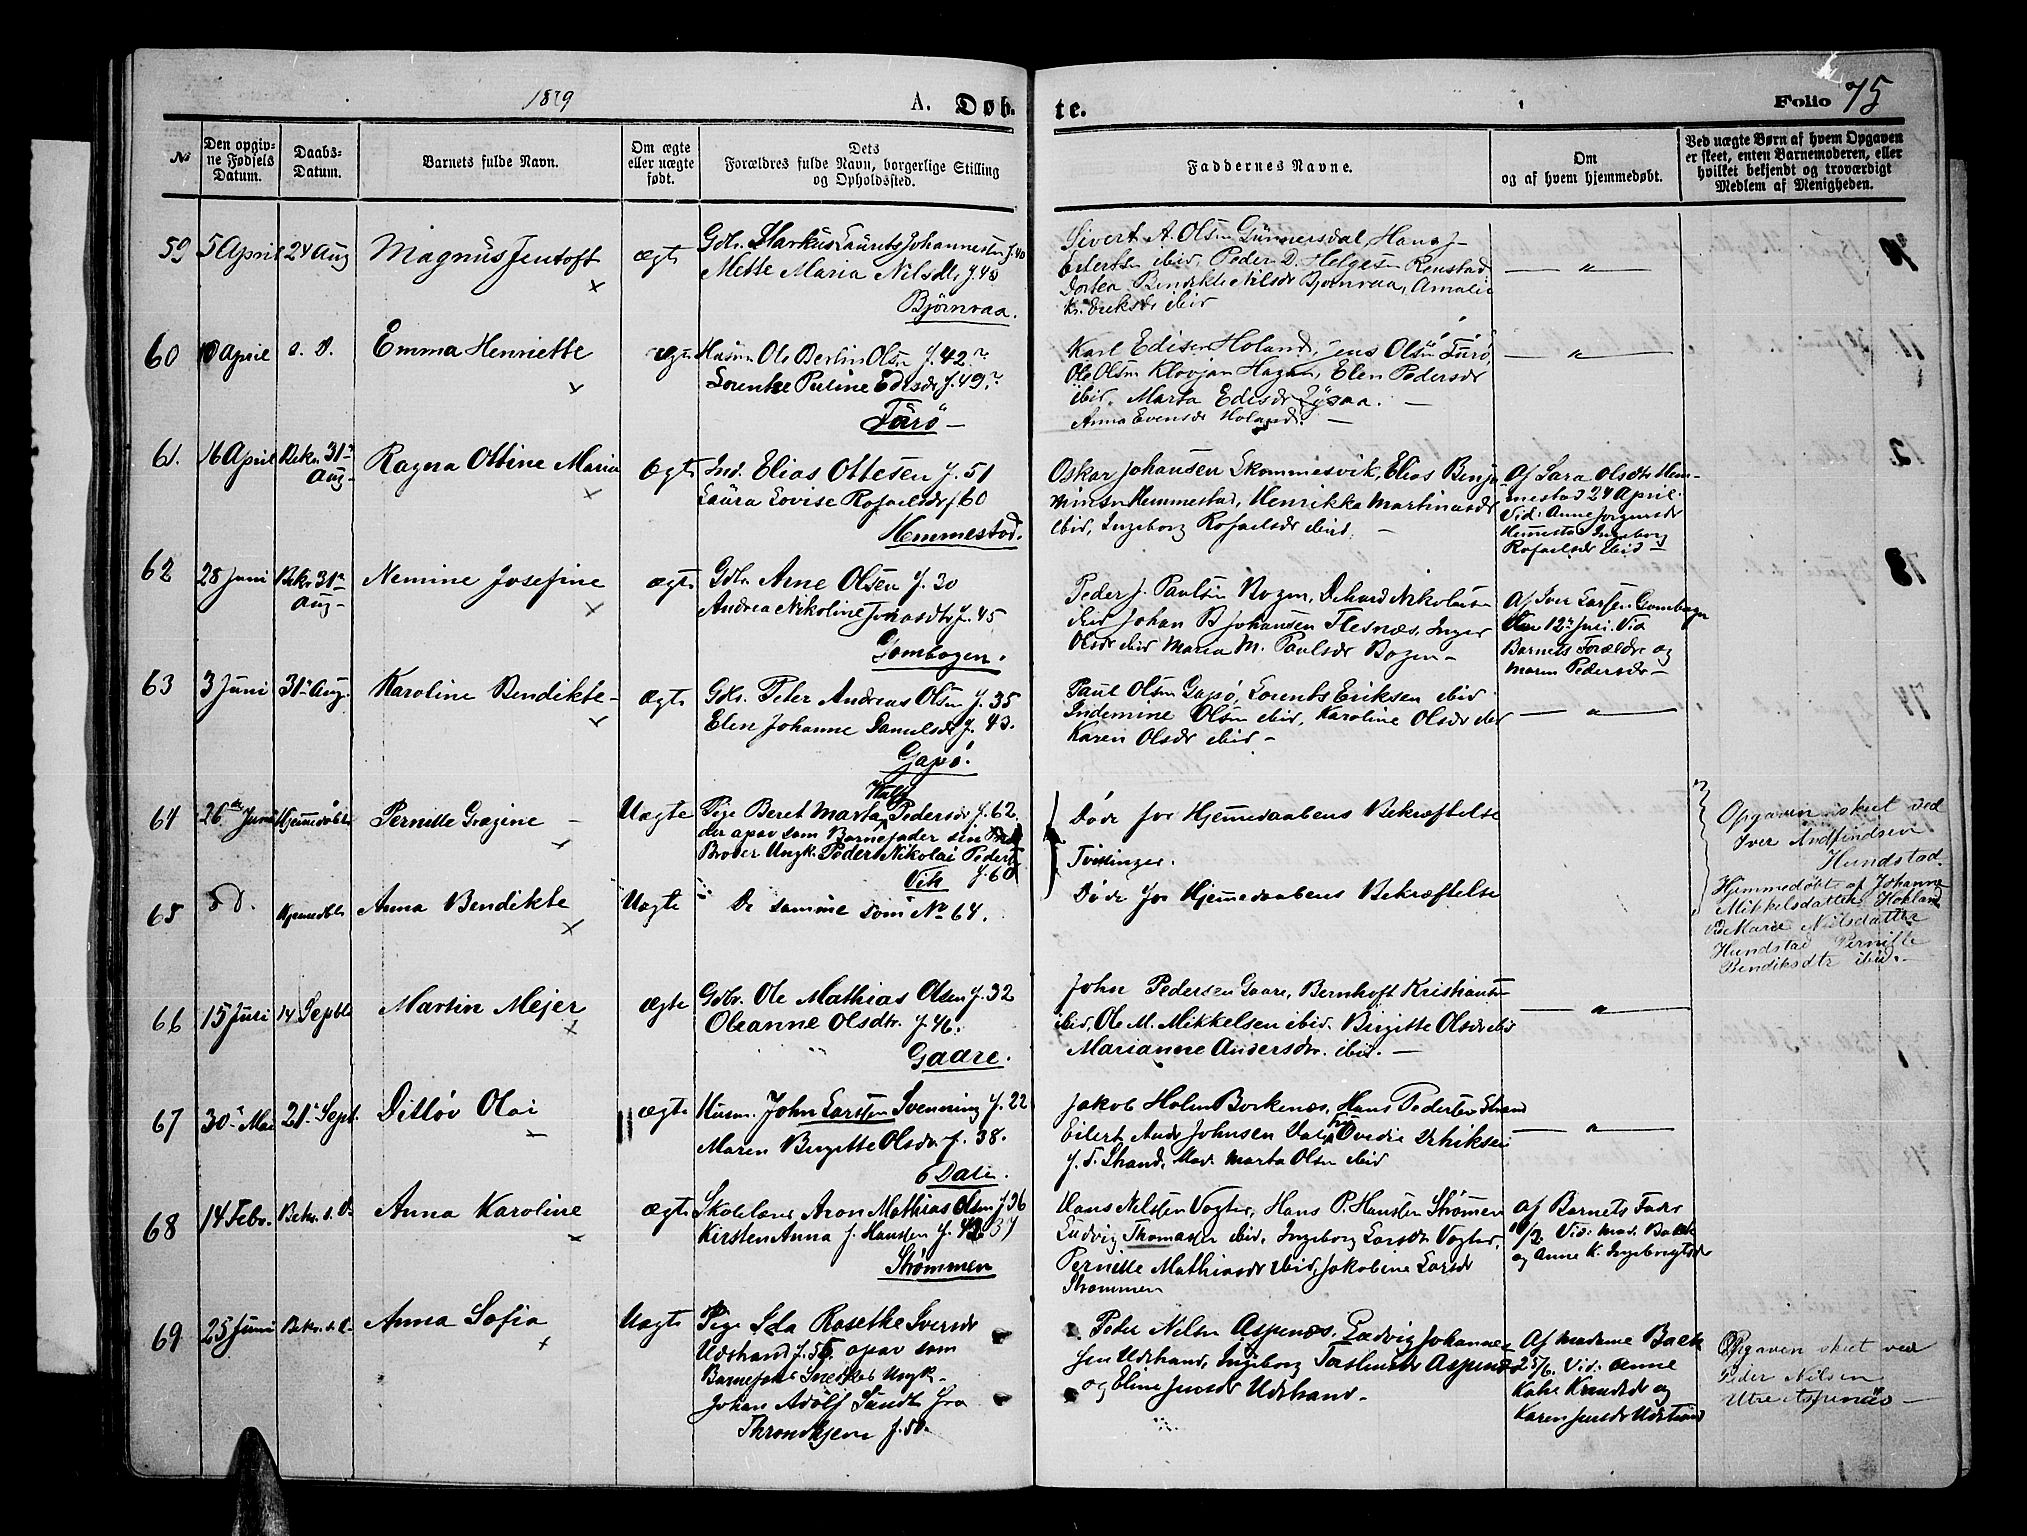 1879
A. Døb-
te.
Folio 75
№
Den opgiv-
ne Fødsels
Datum.
Daabs-
Datum.
Barnets fulde Navn.
Om ægte
eller uægte
født.
Dets
Forældres fulde Navn, borgerlige Stilling
og Opholdssted.
Faddernes Navne.
Om
og af hvem hjemmedøbt.
Ved uægte Børn af hvem Opgaven
er skeet, enten Barnemoderen, eller
hvilket bekjendt og troværdigt
Medlem af Menigheden.
59 5 April 24 Aug Magnus Jentoft ægte
Gdbr. Markus Laurits Johannessen f. 40
Mette Maria Nilsdtr f. 45
Bjørnraa.
Sivert A. Olsen Gunnersdal, Hans J.
Eilertsen ibid, Peder D. Helgesen Renstad
Dortea Bendikte Nilsdr Bjørnraa, Amalie
ibid
— " —
60 10 April s. D. Emma Henriette ægte
Husm Ole Berlin Olsen f. 42
Lorentze Petrine Edisdr f. 49
Tørø —
Karl Edisen Holand, Jens Olsen Tørø
Ole Olsen Hagan, Elen Pedersdr
ibid, Marta Edisdr —
Anna Evensdr Holand.
— " —
61. 16 April Bekr. 31te
Aug-
Ragna Ottine Maria ægte
Ind. Elias Ottesen f. 51
Laura Lovise Rafaelsdr f 60
Hemmestad.
Oskar Johansen Skommesvik, Elias Benja
minsen Hemmestad, Henrikka Martinusdr
ibid, Ingeborg Rafaelsdr ibid. —
Af Sara Olsdtr Hem-
mestad 24 April.
Vid: Anne Jørgensdr
Hemmestad Ingeborg
Rafaelsdr ibid —
62 28 Juni Bekr 31te
Aug-
Nemine Josefine ægte
Gdbr Arne Olsen f. 30
Andrea Nikoline Jonasdtr f. 45
Gombogen.
Peder J. Paulsen Bogen, Nikolaisen
ibid Johan B Johansen Flesnæs, Inger
Olsdr ibid Maria M. Paulsdr Bogen —
Af Iver Larsen Gombogen
den 12te Juli. Vid
Barnets Forældre og
Maren Pedersdr —
63 3 Juni 31te Aug. Karoline Bendikte - ægte
Gbr. Peter Andreas Olsen f. 35
Elen Johanne Danielsdr f. 43.
Gapø.
Paul Olsen Gapø, Lorents Eriksen ibid
Indemine Olsen ibid, Karoline Olsdr ibid
Karen Olsdr ibid —
— " —
64 26de Juni Hjemmedøbt Pernille Gregine - Uægte
Pige Beret Marta Pedersdr f. 62
der opgav som Barnefader sin
Broder Ungk. Peder Nikolai Pedersen
Vik f. 60
Døde før Hjemmedaabens Bekræftelse
Tvillinger.
Opgaven skeet ved
Iver Andfindsen
Hundstad
Hjemmedøbte af Johanna
Mikkelsdatter Hokland
Vid Marie Nilsdatter
Hundstad Pernille
Bendiksdtr ibid. -
65 s D. Hjemmedøbt Anna Bendikte Uægte
De samme som No 64.
Døde før Hjemmedaabens Bekræftelse
66 15 Juli 14 Septbr Martin Mejer ægte
Gdbr. Ole Mathias Olsen f. 32
Oleanne Olsdtr. f. 46.
Gaare.
John Pedersen Gaare, Bernhoft Kristiansen
ibid, Ole M. Mikkelsen ibid. Birgitte Olsdr ibid
Marianne Andersdr. ibid. —
— " —
67 30te Mai 21te Sept. Ditløv Olai ægte
Husm. John Larssen Svenning f. 22
Maren Birgitte Olsdr f. 38.
Dale.
Jakob Holm Borkenæs, Hans Pedersen Strand
Eilert Andr Johnsen
J. S. Strand, Mad. Marta Olsen ibid
— " —
68 14 Febr. Bekr. s. D Anna Karoline ægte
Skolelærer Aron Mathias Olsen f 36
Kirsten Anna f. Hansen f. 37
Strømmen
Hans Nilssen Vogter, Hans P. Hanssen Strømmen
Ludvig Thomassen ibid, Ingeborg Larsdr Vogter,
Pernille Mathiasdr ibid, Jakobine Larsdr
Strømmen
Af Barnets Fader
Vid: Mad. Back
og Anne K. Ingebrigtsdr
69 25 Juni Bekr. s. D. Anna Sofia Uægte
Pige Ida Rosetke Iversdr
Udstrand f. 56. opgav som
Barnefader Ungk.
Johan Adolf Sundt fra
Throndhjem f. 50.
Peder Nilsen Aspenæs, Ludvig Johanne-
sen Udstrand, Ingeborg Aspenæs
og Eline Jensdr Udstrand.
Af Madame Back
25/6. Vid: Anne
Knudsdr og
Karen Jensdr Udstrand
Opgaven skeet ved
Peder Nilsen
Utre Aspenæs —